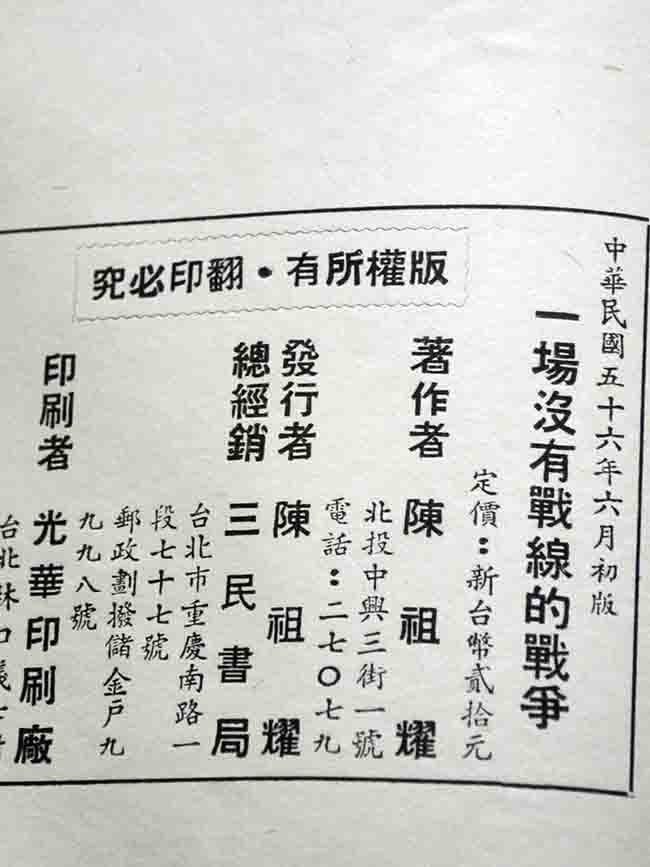 中華民國五十六年六月初版
一場沒有戰線的戰爭
定價：新台幣貳拾元
版權所有・翻印必究
著作者 陳祖耀
北投中興三街一號
電話：二七〇七九
發行者 陳祖耀
總經銷 三民書局
台北市重慶南路一
段七十七號
郵政劃撥儲金戶九
九九八號
印刷者 光華印刷廠
台北